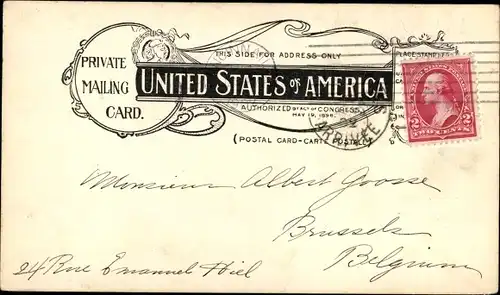 PRIVATE
MAILING
CARD.
THIS SIDE FOR ADDRESS ONLY
UNITED STATES OF AMERICA
AUTHORIZED BY ACT OF CONGRESS
MAY 19, 1898.
(POSTAL CARD-CARTE POSTALE)
PLACE STAMP
ARRIVEE
2 2
TWO CENTS
Monsieur Albert Goosse
Brussels
Belgium
24 Rue Emanuel Hiel